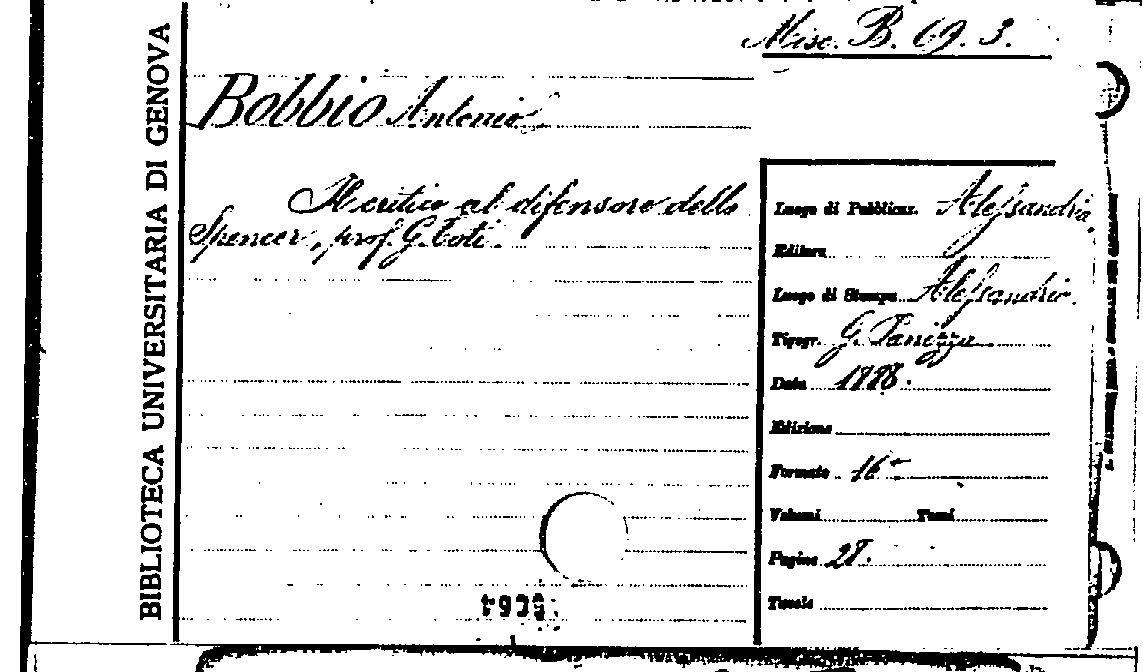 Misc. B. 69. 3.
BIBLIOTECA UNIVERSITARIA DI GENOVA
Bobbio Antonio
Il critico al difensore dello
Spencer, prof. G. Toti.
Luogo di Pubblicaz. Alessandria,
Editore
Luogo di Stampa Alessandria.
Tipogr. G. Panizza
Data 1888.
Edizione
Formato 16º
Volumi Tomi
Pagine 28.
Tavole